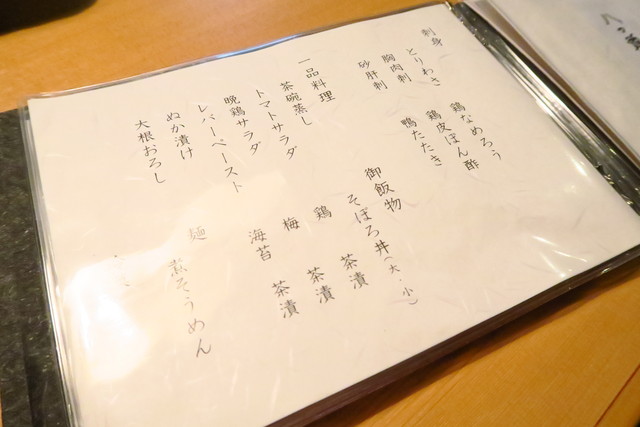 刺身
とりわさ
胸肉刺
砂肝刺
鶏なめろう
鶏皮ぽん酢
鴨たたき
一品料理
茶碗蒸し
トマトサラダ
晩鶏サラダ
レバーペースト
ぬか漬け
大根おろし
御飯物
そぼろ丼(大・小)
鶏 茶漬
梅 茶漬
海苔 茶漬
麺
煮そうめん